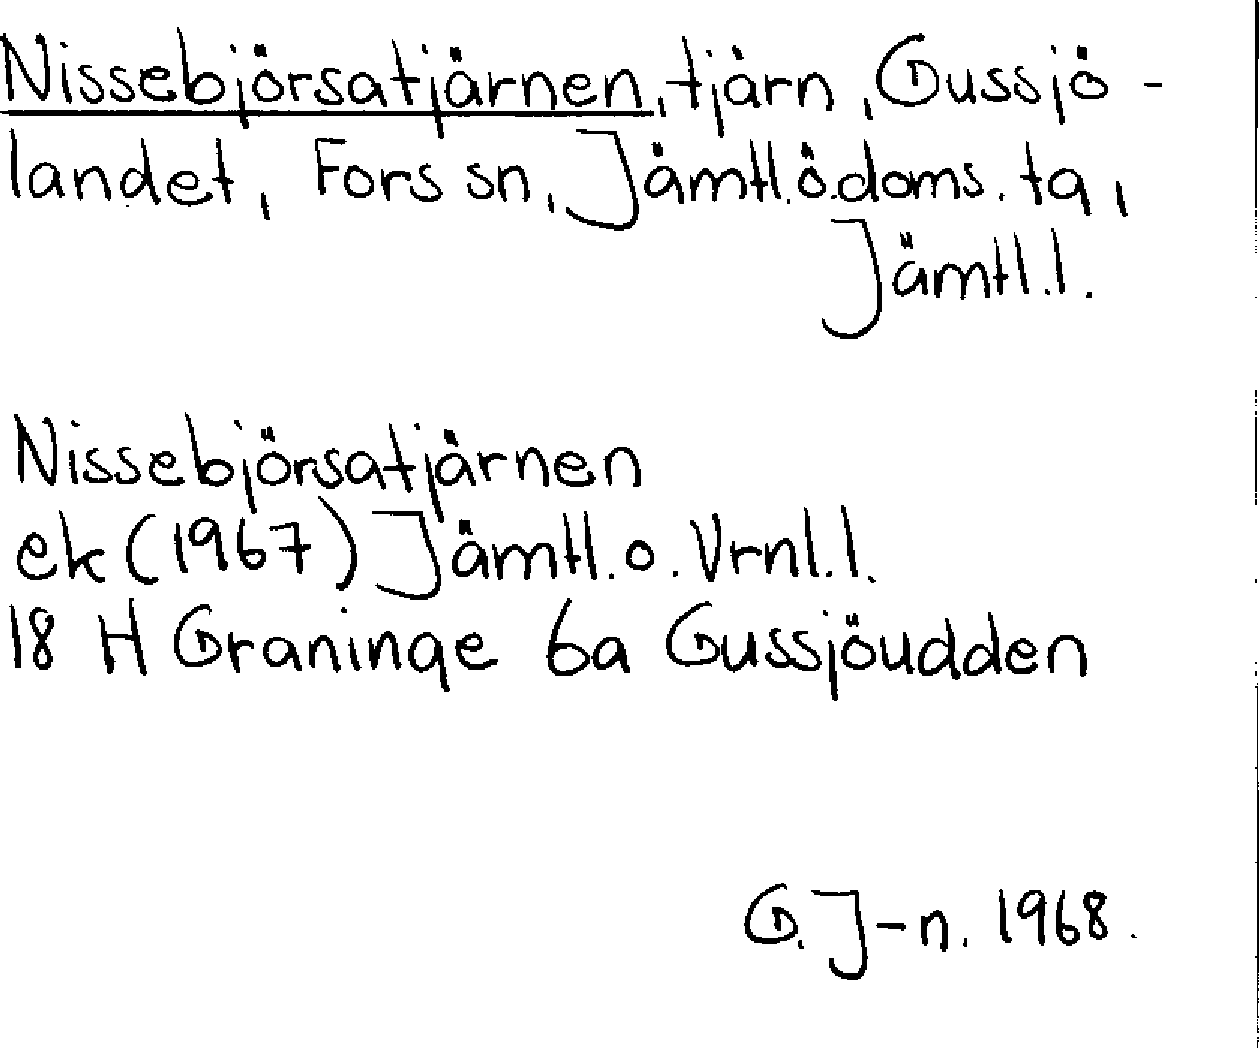 Nissebjörsatjärnen, tjärn, Gussjö-
landet, Fors sn, Jämtl.ö.doms.tg,
Jämtl.l.
Nissebjörsatjärnen
ek (1967) Jämtl.o. Vrnl.l.
18 H Graninge 6a Gussjöudden
G.J-n. 1968.